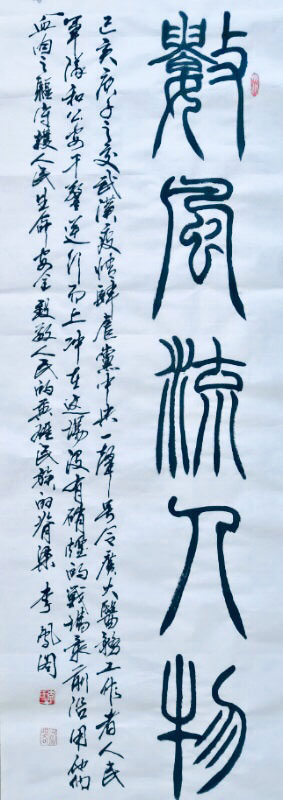 數風流人物
己亥庚子之交武漢疫情肆虐黨中央一聲号令廣大醫務工作者人民
軍隊和公安干警逆行而上冲在这場没有硝煙的戰場最前沿用他們
血肉之軀守護人民生命安全致敬人民的英雄民族的脊梁 李鳳